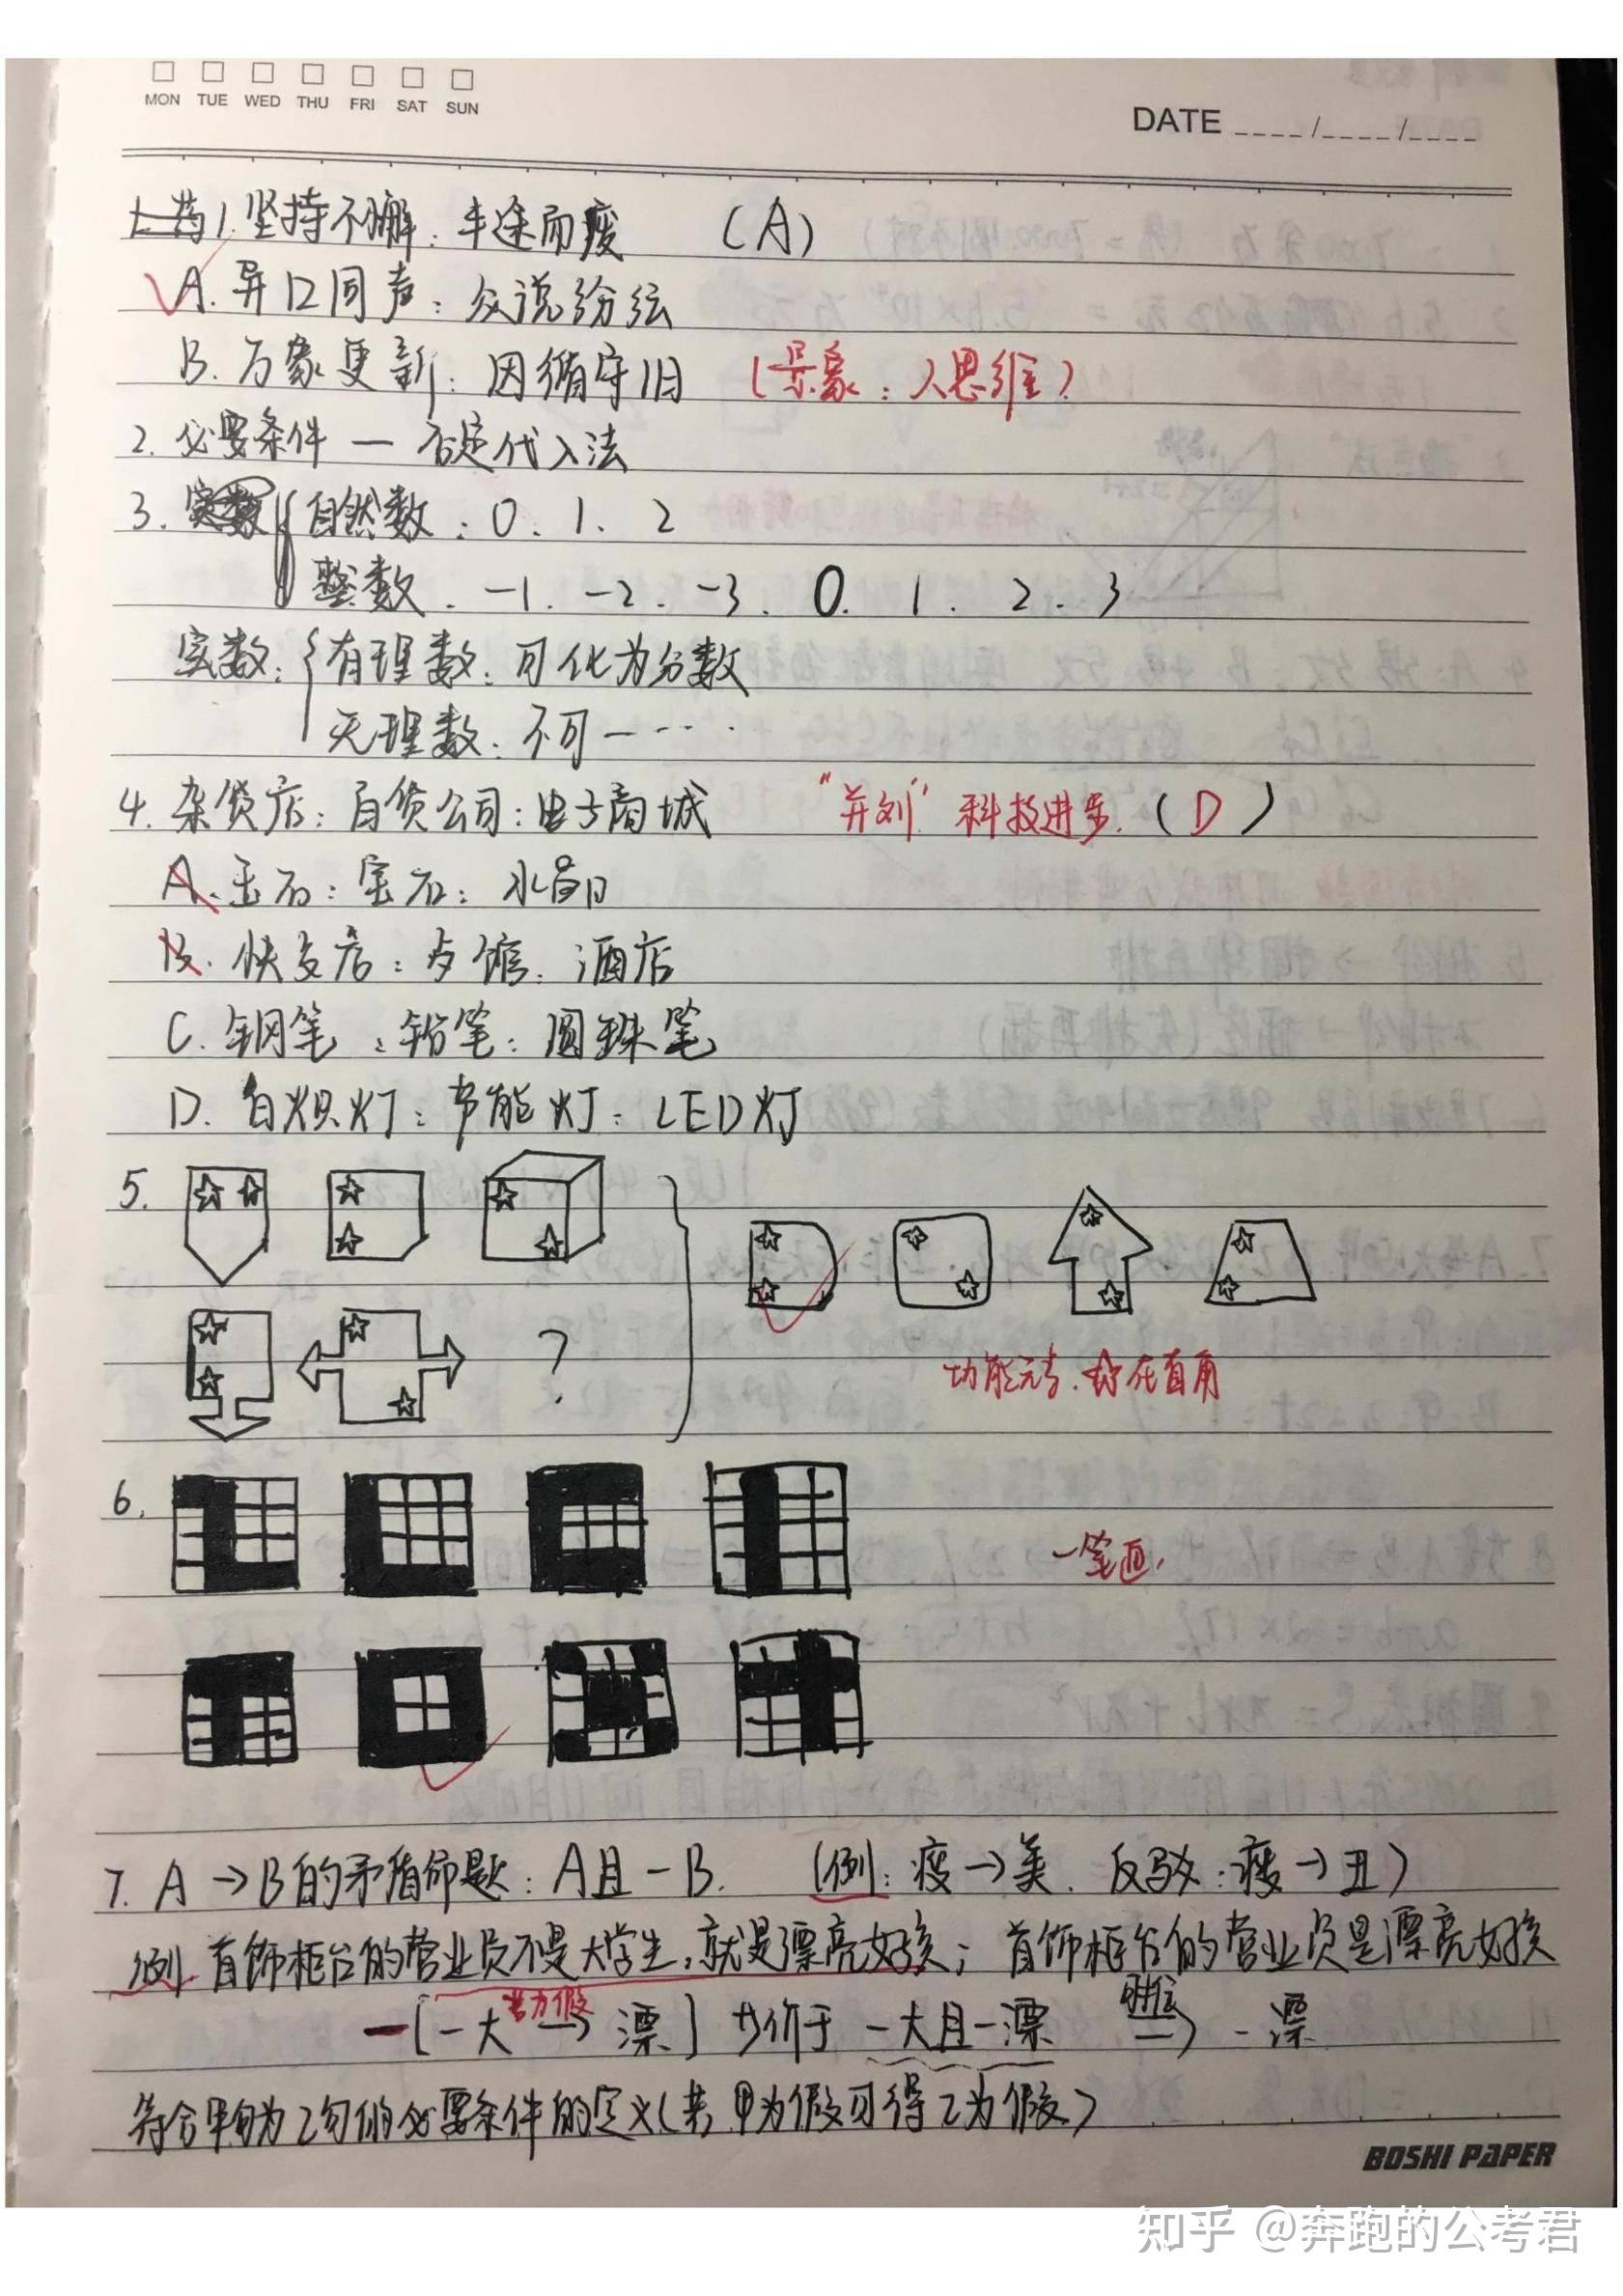 MON TUE WED THU FRI SAT SUN
DATE ____/____/____
1. 坚持不懈：半途而废 （A）
A. 异口同声：众说纷纭
B. 万象更新：因循守旧 （景象：人思维）
2. 必要条件 — 否定代入法
3. 自然数：0. 1. 2
整数. -1. -2. -3. 0. 1. 2. 3
实数：有理数：可化为分数
无理数：不可一……
4. 杂货店：百货公司：电子商城 “并列” 科技进步.（D）
A. 玉石：宝石：水晶
B. 快支店：夕馆：酒店
C. 钢笔：铅笔：圆珠笔
D. 白炽灯：节能灯：LED灯
5.
?
功能元素. 在直角
6.
一笔画，
7. A→B的矛盾命题：A且-B. （例：瘦→美. 反驳：瘦→丑）
例. 首饰柜台的营业员不是大学生，就是漂亮女孩； 首饰柜台的营业员是漂亮女孩
-[-大 若为假 → 漂] 等价于 -大且-漂 → -漂
符合甲句为乙句的必要条件的定义（若甲为假可得乙为假）
BOSHI PAPER
知乎 @奔跑的公考君